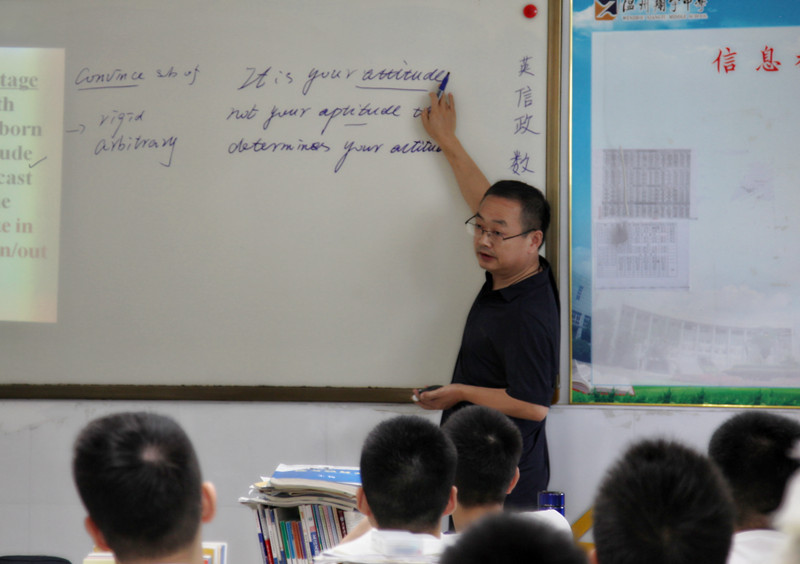 tage
th
born
ude
cast
e
e in
n/out
Convince sb of
→ rigid
arbitrary
It is your attitude
not your aptitude
determines your altitu
英
信
政
数
信息